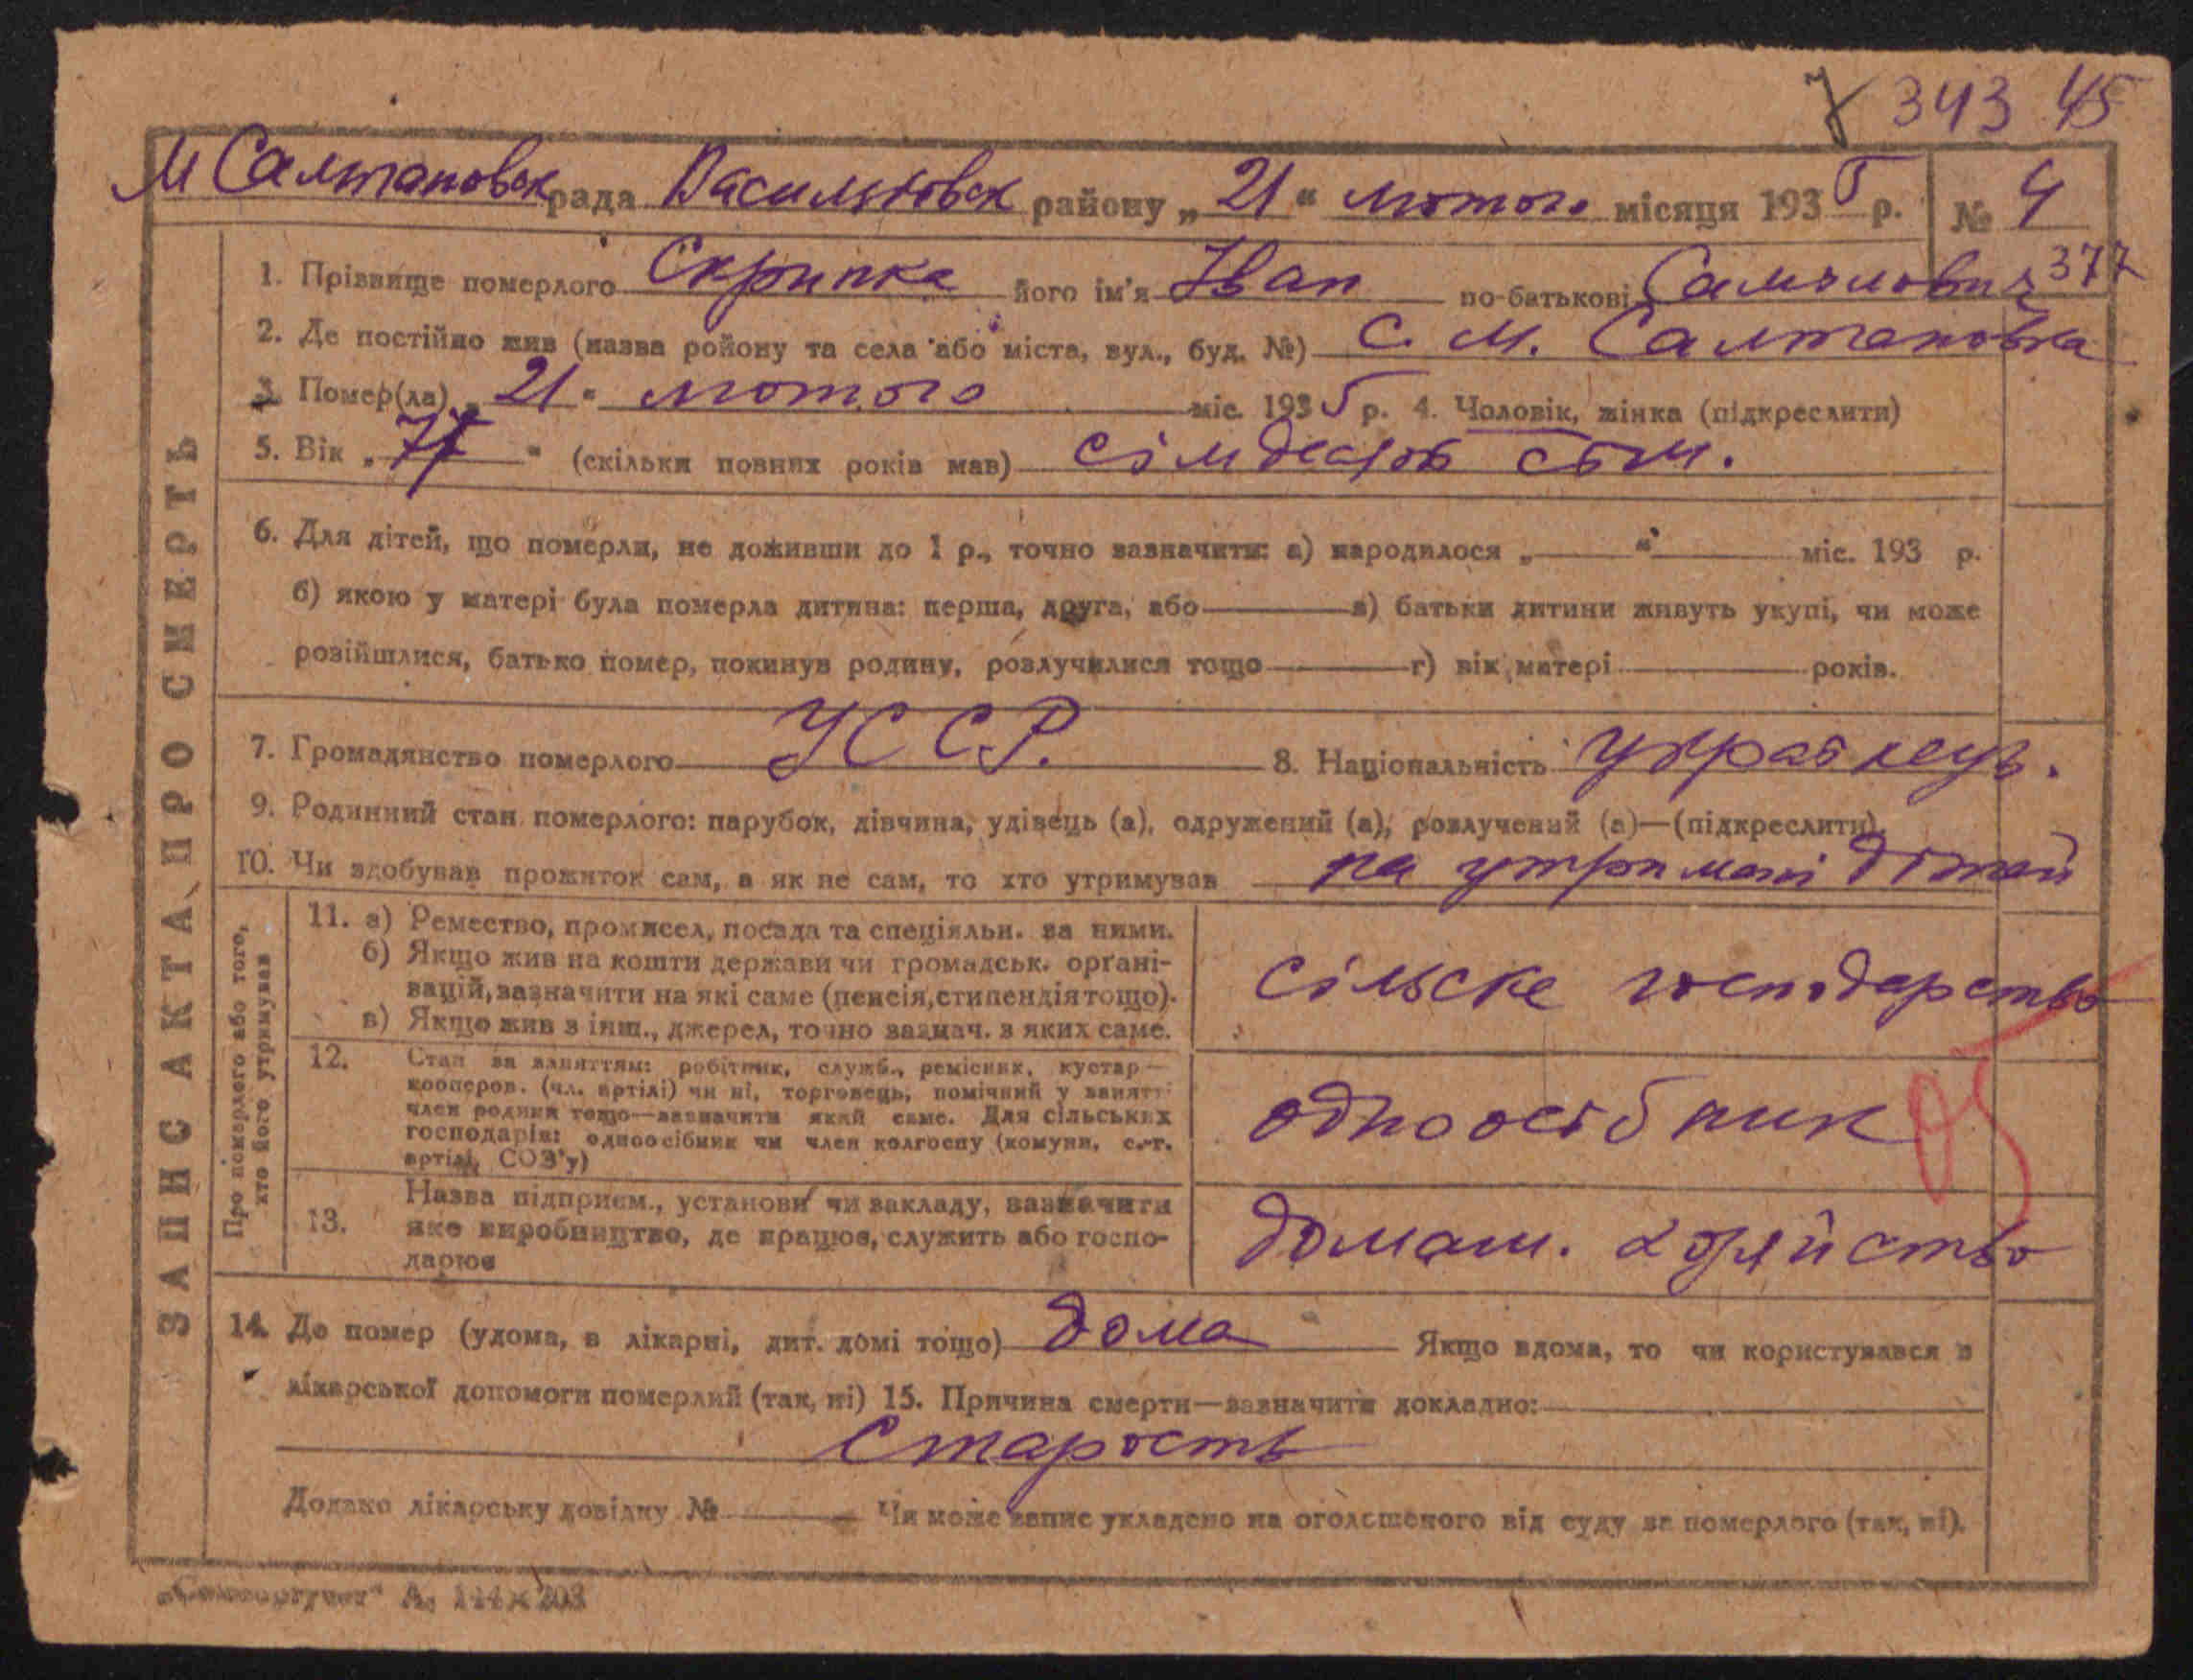 343 45
М Салтановск рада Васильковск району „21“ лютого місяця 1935 р. № 4
1. Прізвище померлого Скрипка його ім'я Іван по-батькові 377
2. Де постійно жив (назва ройону та села або міста, вул., буд. №) С. М. Салтановка
3. Помер(ла) „21“ лютого міс. 1935 р. 4. Чоловік, жінка (підкреслити)
5. Вік „77“ (скільки повних років мав) сімдесят сім.
6. Для дітей, що померли, не доживши до 1 р., точно зазначити: а) народилося „ “ міс. 193 р.
б) якою у матері була померла дитина: перша, друга, або в) батьки дитини живуть укупі, чи може
розійшлися, батько помер, покинув родину, розлучилися тощо г) вік матері років.
7. Громадянство померлого УССР. 8. Національність українець.
9. Родинний стан померлого: парубок, дівчина, удівець (а), одружений (а), розлучений (а)—(підкреслити).
10. Чи здобував прожиток сам, а як не сам, то хто утримував на утримані дітей
ЗАПИС АКТА ПРО СМЕРТЬ
Про померлого або того,
хто його утримував
11. а) Ремество, промисел, посада та спеціяльн. за ними.
б) Якщо жив на кошти держави чи громадськ. орґані-
зацій, зазначити на які саме (пенсія, стипендія тощо).
в) Якщо жив з інш., джерел, точно зазнач. з яких саме.
сільске господарство
12. Стан за заняттям: робітник, служб., ремісник, кустар—
кооперов. (чл. артілі) чи ні, торговець, помічний у занятті
член родини тощо—зазначити який саме. Для сільських
господарів: одноосібник чи член колгоспу (комуни, с.-г.
артілі, СОЗ'у)
одноосібник
13. Назва підприєм., установи чи закладу, зазначити
яке виробництво, де працює, служить або госпо-
дарює
домаш. хозяйство
14. Де помер (удома, в лікарні, дит. домі тощо) дома Якщо вдома, то чи користувався з
лікарської допомоги померлий (так, ні) 15. Причина смерти—зазначити докладно:
Старость
Додано лікарську довідку № Чи може запис укладено на оголошеного від суду за померлого (так, ні).
А; 144×203